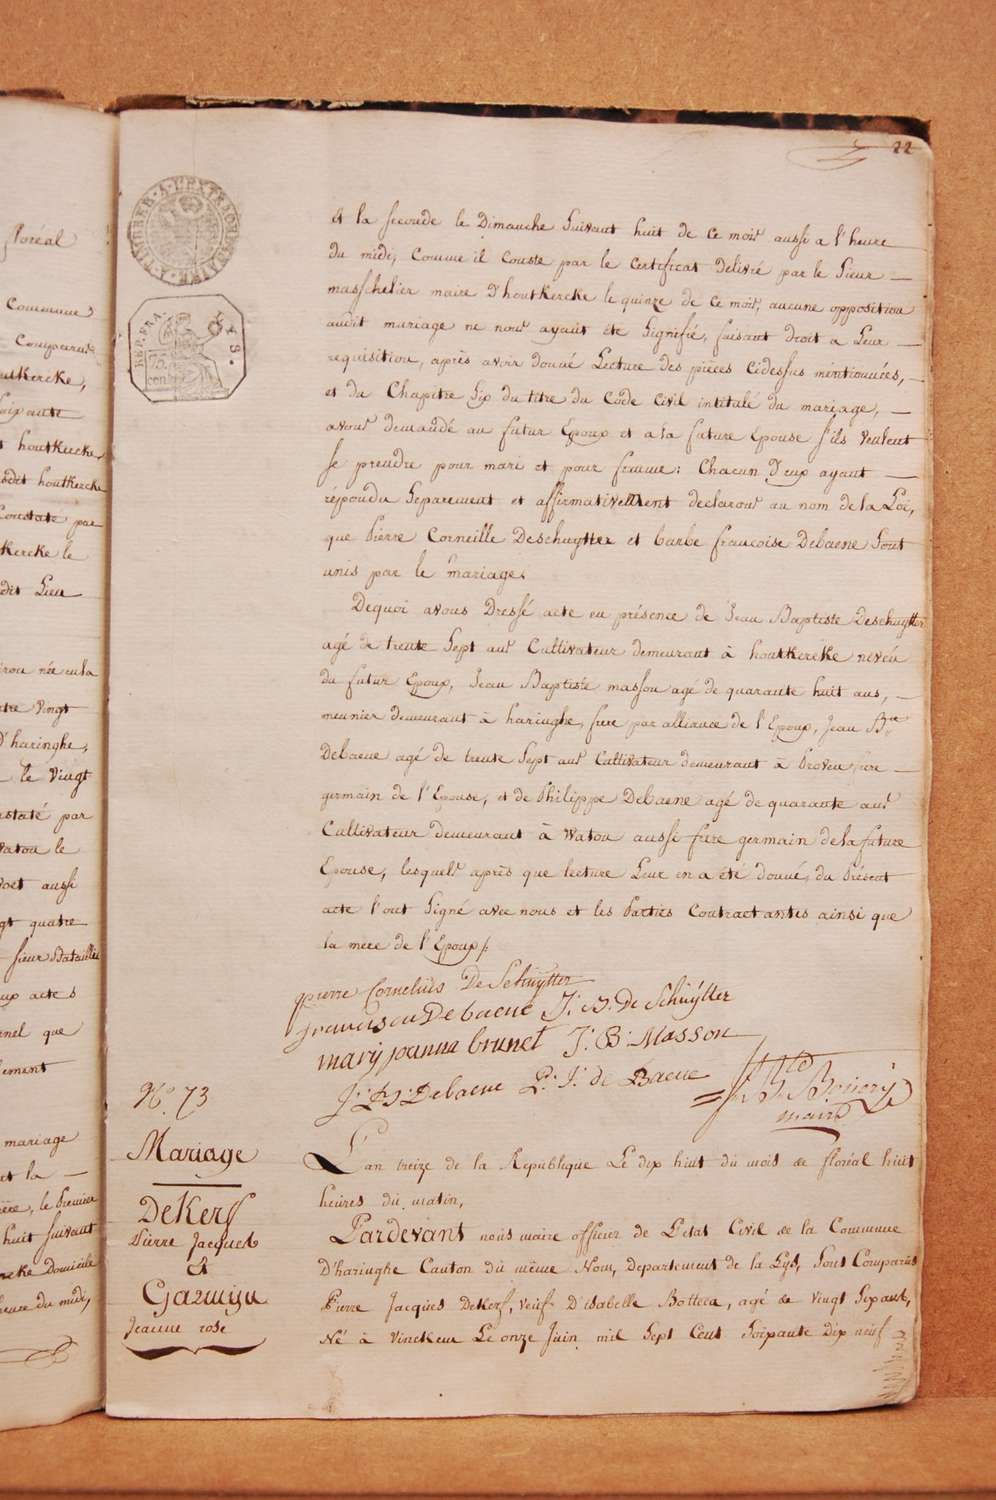 22
TIMBRE A L'EXTRAORDINAIRE
REP. FRA.
75
cen
LYS.
floréal
Commune
Comparus
houtkercke,
soixante
houtkercke
houtkercke
Constate par
kercke le
dit Lieu
née en la
vingt
D'haringhe,
le vingt
constaté par
watou le
aussi
quatre
sieur Bataillie
actes
que
mariage
et la
le Premier
huit suivant
Domicile
heure du midi,
et la seconde le Dimanche suivant huit de ce mois aussi a l'heure
du midi, comme il conste par le certificat delivré par le sieur —
masschelier maire d'houtkercke le quinze de ce mois, aucune opposition
audit mariage ne nous ayant été signifié, faisant droit a leur —
requisition, après avoir donné Lecture des pièces cidessus mentionnées, —
et du Chapitre six du titre du Code Civil intitulé du mariage, —
avons demandé au futur Epoux et a la future Epouse s'ils veulent
se prendre pour mari et pour femme: Chacun d'eux ayant —
répondu séparement et affirmativement declarons au nom de la Loi,
que Pierre Corneille Deschuytter et barbe francoise Debaene sont
unis par le mariage.
Dequoi avons Dressé acte en présence de Jean Baptiste Deschuytter
agé de trente sept ans Cultivateur demeurant à houtkercke neveu
du futur Epoux, Jean Baptiste masson agé de quarante huit ans, —
meunier demeurant à haringhe, frere par alliance de l'Epoux, Jean Bte
Debaene agé de trente sept ans Cultivateur demeurant à Proven frere —
germain de l'Epouse, et de Philippe Debaene agé de quarante ans
Cultivateur demeurant à Watou aussi frere germain de la future
Epouse, lesquels après que lecture Leur en a été donné, du Présent
acte l'ont signé avec nous et les Parties Contractantes ainsi que
la mere de l'Epoux /.
pierre Cornelius De Schuytter
francisca Debaene J: B: De Schuytter
marij joanna brunet J: B: Masson
J: B: Debaene P: J: de Baene
maire
No. 73
Mariage
DeKerf
Pierre Jacques
et
Garmyn
Jeanne rose
L'an treize de la Republique Le dix huit du mois de floréal huit
heures du matin,
Pardevant nous maire officier de L'etat Civil de la Commune
D'haringhe Canton du même Nom, departement de la Lys, sont Comparus
Pierre Jacques Dekerf, veuf D'isabelle Bottera, agé de vingt six ans,
Né à vinckem Le onze Juin mil sept Cent soixante dix neuf